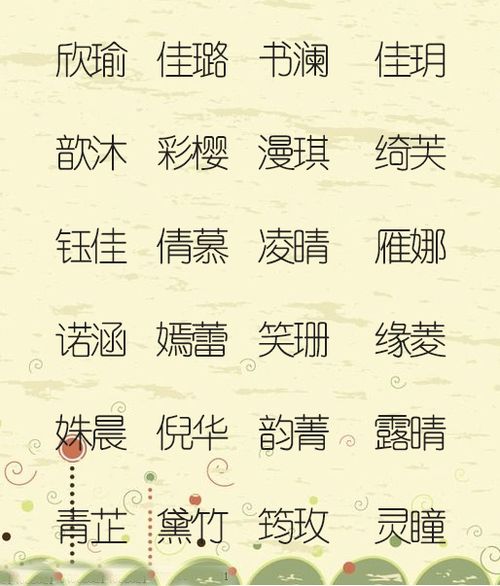 欣瑜 佳璐 书澜 佳玥
歆沐 彩樱 漫琪 绮芙
钰佳 倩慕 凌晴 雁娜
诺涵 嫣蕾 笑珊 缘菱
姝晨 倪华 韵菁 露晴
青芷 黛竹 筠玫 灵瞳
1